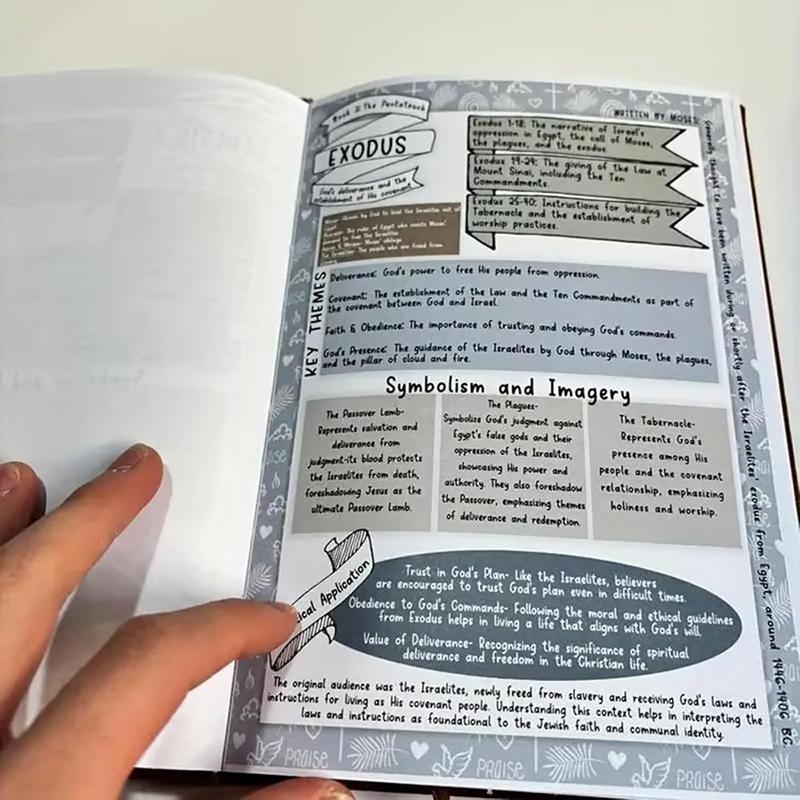 Book 2: The Pentateuch
EXODUS
God's deliverance and the
establishment of His covenant
WRITTEN BY MOSES:
Generally thought to have been written during or shortly after the Israelites' exodus from Egypt, around 1446-1406 BC
Exodus 1-18: The narrative of Israel's
oppression in Egypt, the call of Moses,
the plagues, and the exodus.
Exodus 19-24: The giving of the law at
Mount Sinai, including the Ten
Commandments.
Exodus 25-40: Instructions for building the
Tabernacle and the establishment of
worship practices.
Moses: Chosen by God to lead the Israelites out of
Egypt
Pharaoh: The ruler of Egypt who resists Moses'
demand to free the Israelites
Aaron & Miriam: Moses' siblings
The Israelites: The people who are freed from
KEY THEMES
Deliverance: God's power to free His people from oppression.
Covenant: The establishment of the Law and the Ten Commandments as part of
the covenant between God and Israel.
Faith & Obedience: The importance of trusting and obeying God's commands.
God's Presence: The guidance of the Israelites by God through Moses, the plagues,
and the pillar of cloud and fire.
Symbolism and Imagery
The Passover Lamb-
Represents salvation and
deliverance from
judgment-its blood protects
the Israelites from death,
foreshadowing Jesus as the
ultimate Passover Lamb.
The Plagues-
Symbolize God's judgment against
Egypt's false gods and their
oppression of the Israelites,
showcasing His power and
authority. They also foreshadow
the Passover, emphasizing themes
of deliverance and redemption.
The Tabernacle-
Represents God's
presence among His
people and the covenant
relationship, emphasizing
holiness and worship.
ical Application
Trust in God's Plan- Like the Israelites, believers
are encouraged to trust God's plan even in difficult times.
Obedience to God's Commands- Following the moral and ethical guidelines
from Exodus helps in living a life that aligns with God's will.
Value of Deliverance- Recognizing the significance of spiritual
deliverance and freedom in the Christian life.
The original audience was the Israelites, newly freed from slavery and receiving God's laws and
instructions for living as His covenant people. Understanding this context helps in interpreting the
laws and instructions as foundational to the Jewish faith and communal identity.
PRAISE
PRAISE
PRAISE